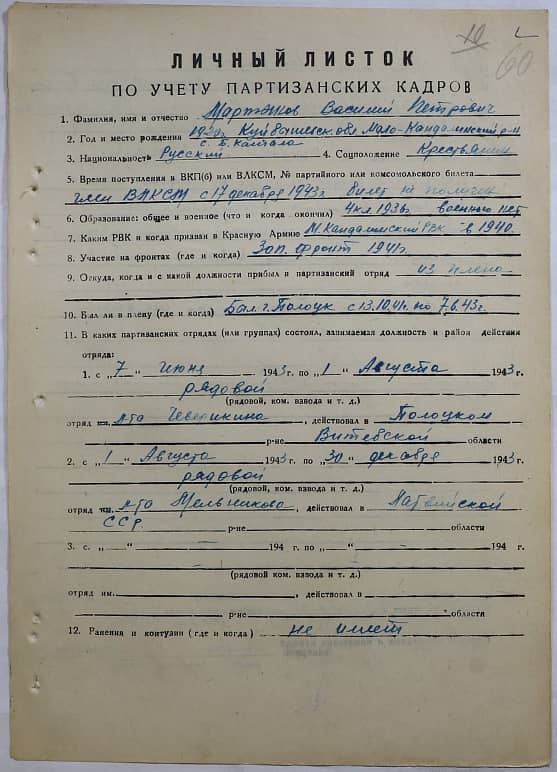 10
60
ЛИЧНЫЙ ЛИСТОК
ПО УЧЕТУ ПАРТИЗАНСКИХ КАДРОВ
1. Фамилия, имя и отчество Василий Петрович
2. Год и место рождения 1920г. Куйбышевск. обл. Мало-Кандалинский р-н
с.
3. Национальность Русский 4. Соцположение Крестьянин
5. Время поступления в ВКП(б) или ВЛКСМ, № партийного или комсомольского билета
член ВЛКСМ с 17 декабря 1943г. билет не получен
6. Образование: общее и военное (что и когда окончил) 4 кл. 1936г. военного нет
7. Каким РВК и когда призван в Красную Армию М. Кандалинский РВК в 1940.
8. Участие на фронтах (где и когда) Зап. фронт 1941г.
9. Откуда, когда и с какой должности прибыл в партизанский отряд из плена
10. Был ли в плену (где и когда) Был г. Полоцк с 13.10.41г. по 7.6.43г.
11. В каких партизанских отрядах (или группах) состоял, занимаемая должность и район действия
отряда:
1. с „7“ Июня 1943г. по „1“ Августа 1943г.
рядовой
(рядовой, ком. взвода и т. д.)
отряд им. л-та , действовал в Полоцком
р-не Витебской области
2. с „1“ Августа 1943г. по „30“ декабря 1943г.
рядовой
(рядовой, ком. взвода и т. д.)
отряд им. л-та Мельникова, действовал в Латвийской
ССР. р-не области
3. с. „ — “ — 194 г. по „ — “ — 194 г.
(рядовой ком. взвода и т. д.)
отряд им. , действовал в
р-не области
12. Ранения и контузии (где и когда) не имеет